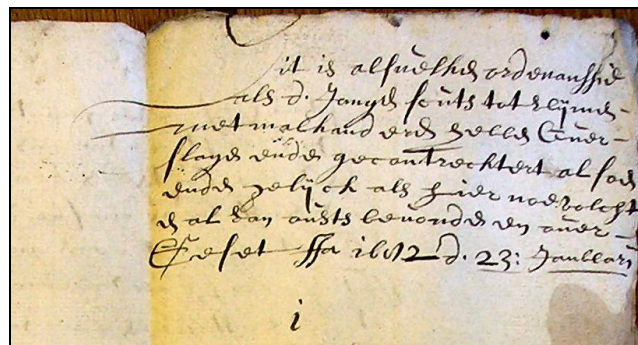 it is alsuelke ordenanssie
als d. Jonge scuts tot Rijmen
met malkanderen hebben Over-
slagen ende gecontrechtert al soe
ende gelijck als hier noe volcht
al van ousts bevonden en over-
Geset 1612 d. 23: Januari
i